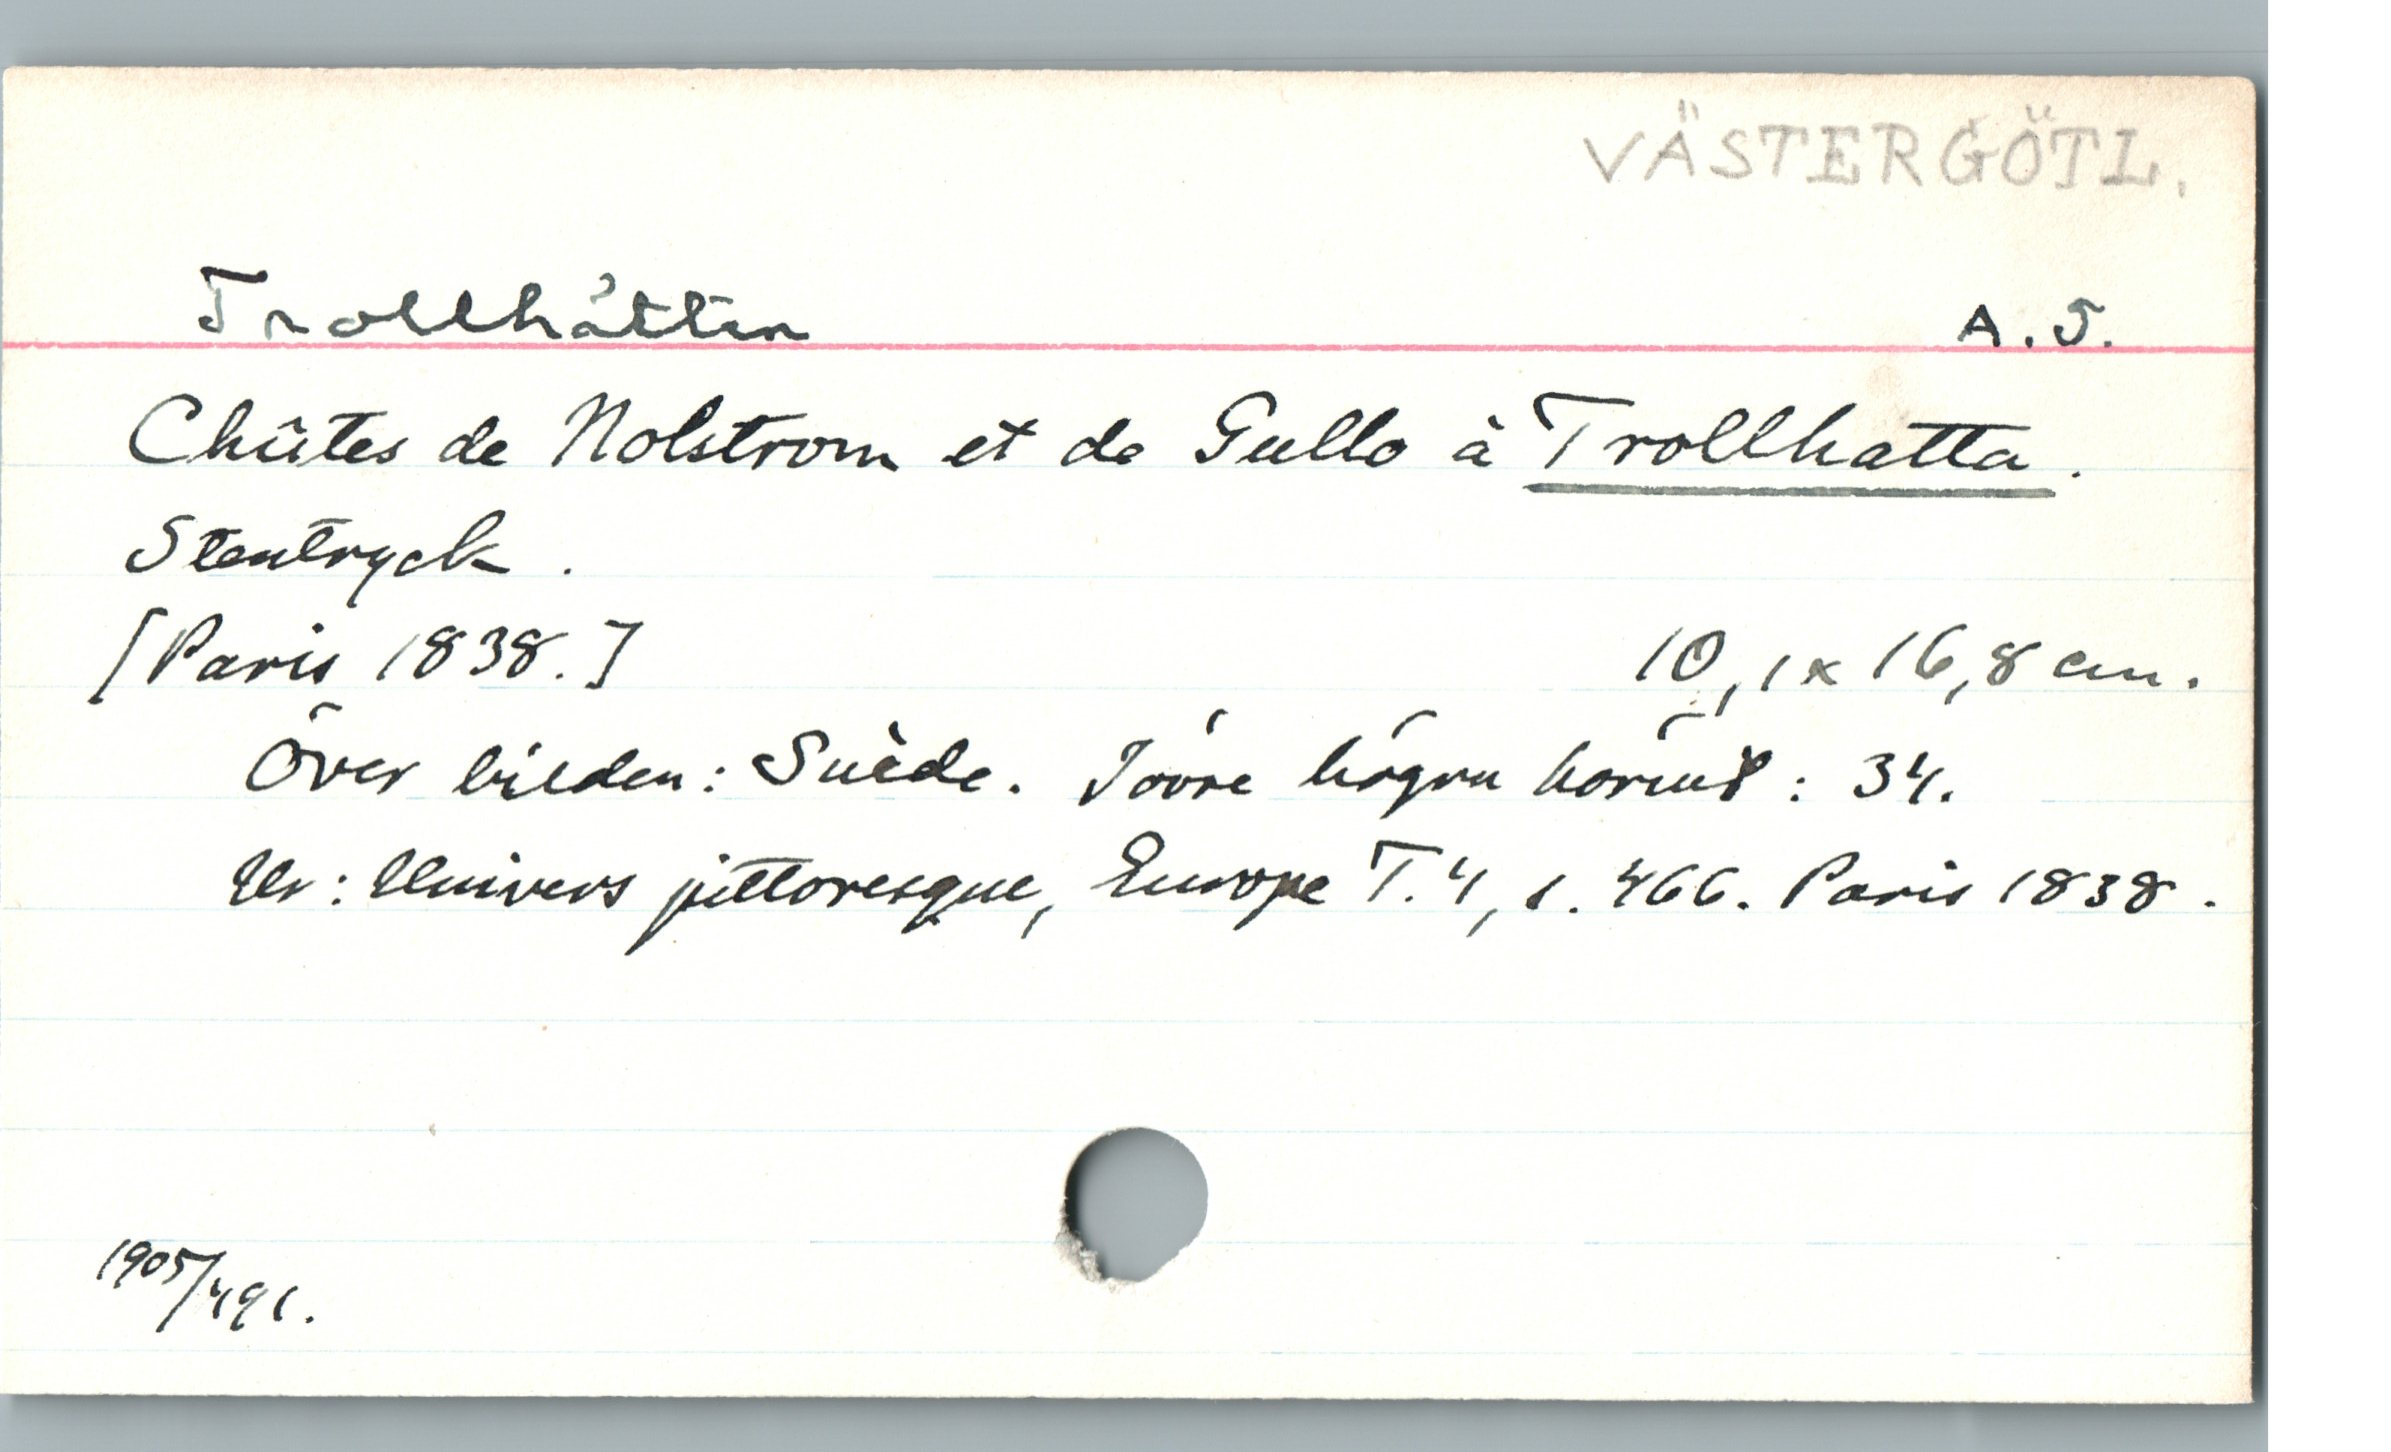 VÄSTERGÖTL.
Trollhättan A. 5.
Chûtes de Nolstrom et de Gullo à Trollhatta.
Stentryck.
[Paris 1838.] 10,1 x 16,8 cm.
Över bilden: Suède. I övre högra hörnet: 34.
Ur: Univers pittoresque, Europe T. 4, s. 466. Paris 1838.
1905/491.